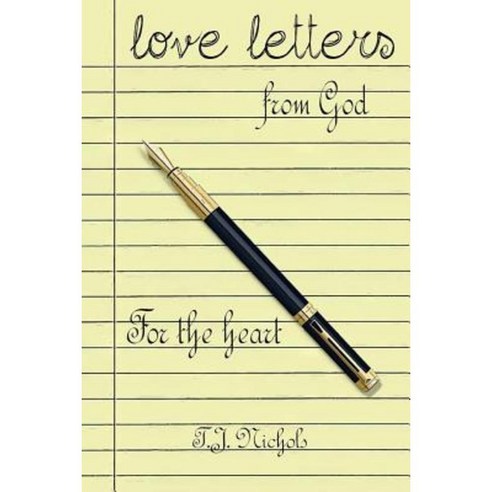 love letters
from God
For the heart
T.J. Nichols